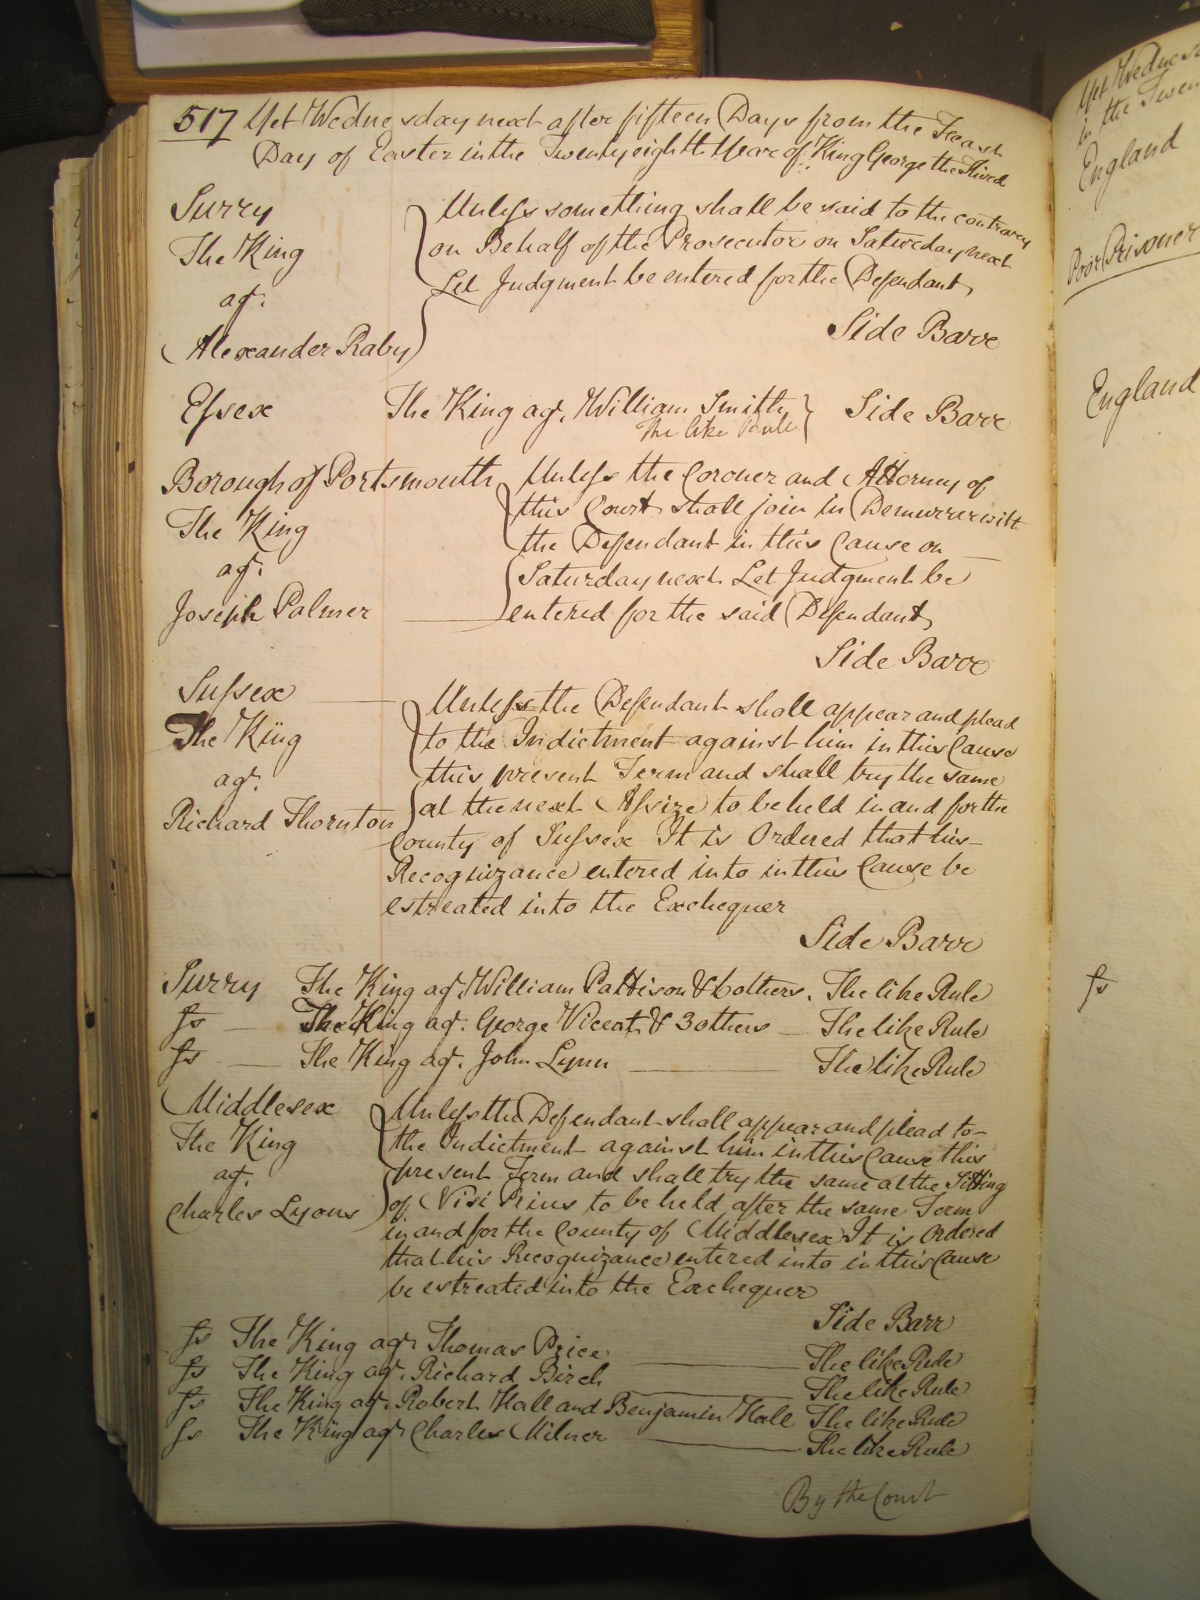 517 Yet Wednesday next after fifteen Days from the Feast
Day of Easter in the Twenty eighth Year of King George the Third
Surry
The King
agt.
Alexander Raby
Unless something shall be said to the contrary
on Behalf of the Prosecutor on Saturday next
Let Judgment be entered for the Defendant
Side Barr
Essex The King agt. William Smith Side Barr
The like Rule
Borough of Portsmouth
The King
agt.
Joseph Palmer
Unless the Coroner and Attorney of
this Court shall join in Demurrer with
the Defendant in this Cause on
Saturday next Let Judgment be
entered for the said Defendant
Side Barr
Sussex
The King
agt.
Richard Thornton
Unless the Defendant shall appear and plead
to the Indictment against him in this Cause
this present Term and shall try the same
at the next Assize to be held in and for the
County of Sussex It is Ordered that his
Recognizance entered into in this Cause be
estreated into the Exchequer
Side Barr
Surry The King agt. William Pattison & 6 others. The like Rule
Ss The King agt. George Viceat & 3 others The like Rule
Ss The King agt. John Lynn The like Rule
Middlesex
The King
agt.
Charles Lyons
Unless the Defendant shall appear and plead to
the Indictment against him in this Cause this
present Term and shall try the same at the Sitting
of Nisi Prius to be held after the same Term
in and for the County of Middlesex It is Ordered
that his Recognizance entered into in this Cause
be estreated into the Exchequer
Side Barr
Ss The King agt. Thomas Price The like Rule
Ss The King agt. Richard Birch The like Rule
Ss The King agt. Robert Hall and Benjamin Hall The like Rule
Ss The King agt. Charles Milner The like Rule
By the Court
Yet Wednes
in the Twen
England
Poor Prisoner
England
Ss